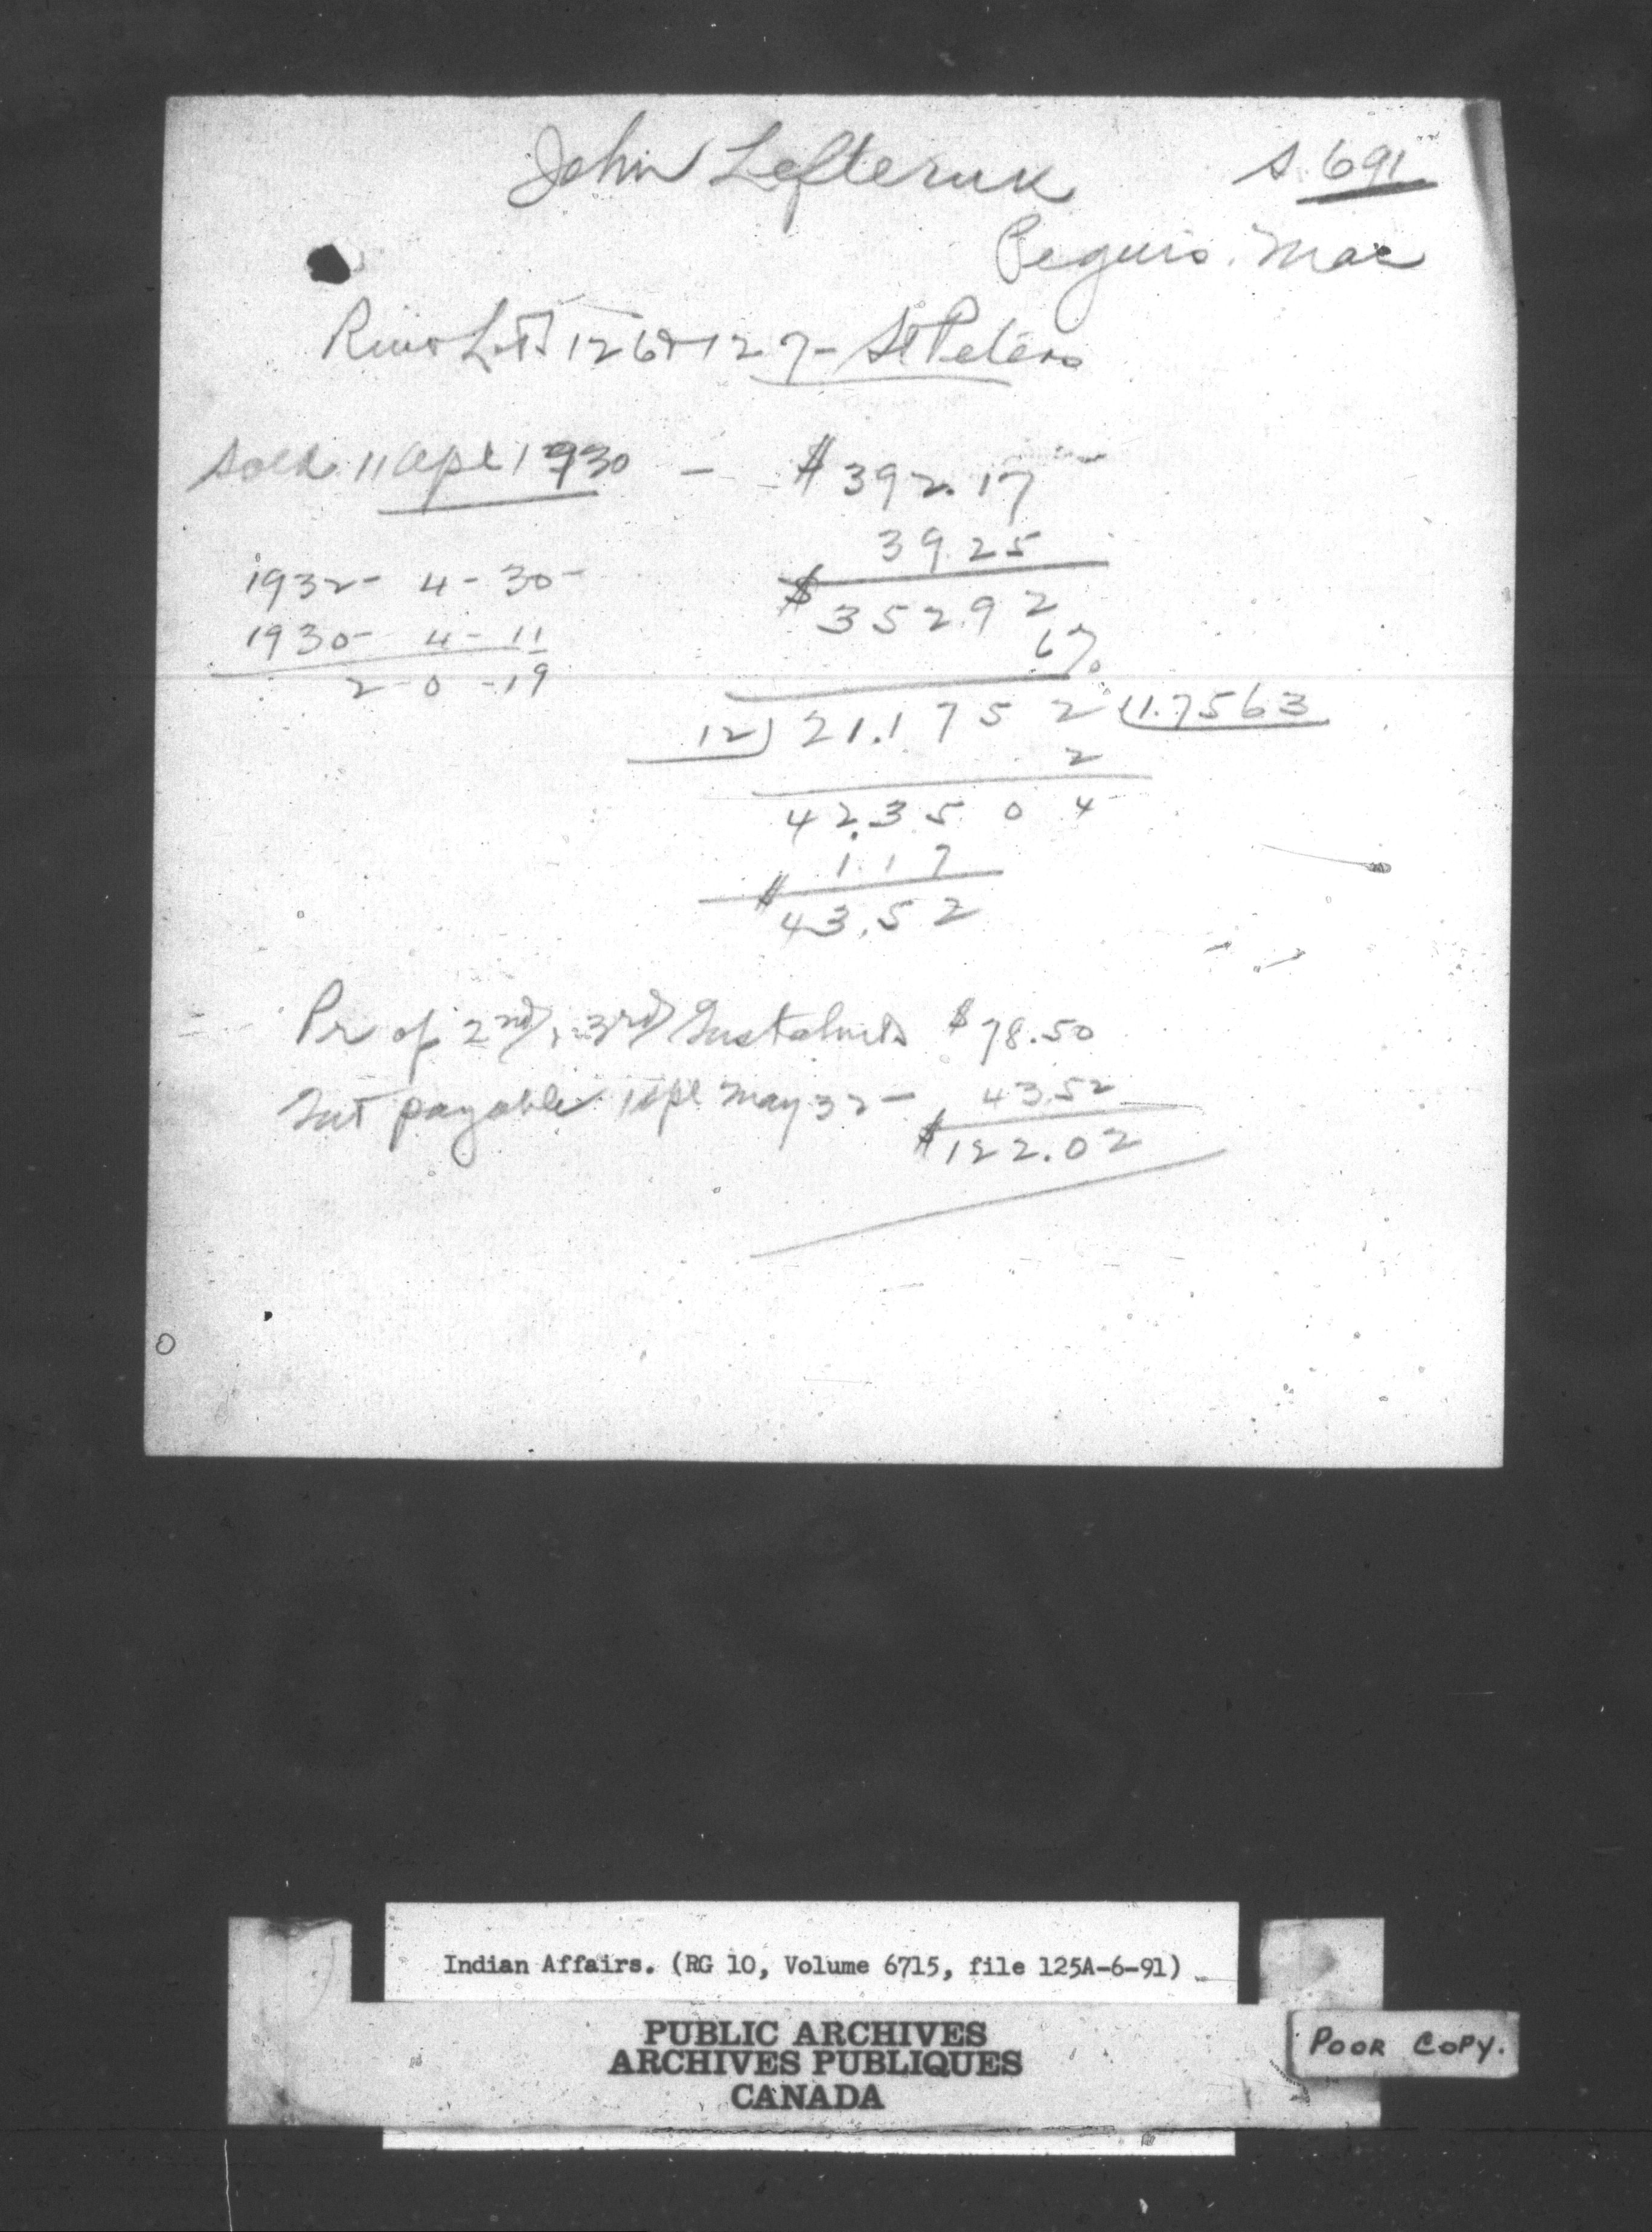 John Lefteruk
S. 691
Peguis. Mac
River Lots 126 & 127 - St Peters
Sold 11 Apl 1930 - $392.17
39.25
$352.92
6%
1932 - 4 - 30 -
1930 - 4 - 11
2 - 0 - 19
12) 21.1752 (1.7563
2
42.3504
1.17
$43.52
Pr of 2nd, 3rd Instalmts $78.50
Int payable May 32 - 43.52
$122.02
Indian Affairs. (RG 10, Volume 6715, file 125A-6-91)
PUBLIC ARCHIVES
ARCHIVES PUBLIQUES
CANADA
POOR COPY.